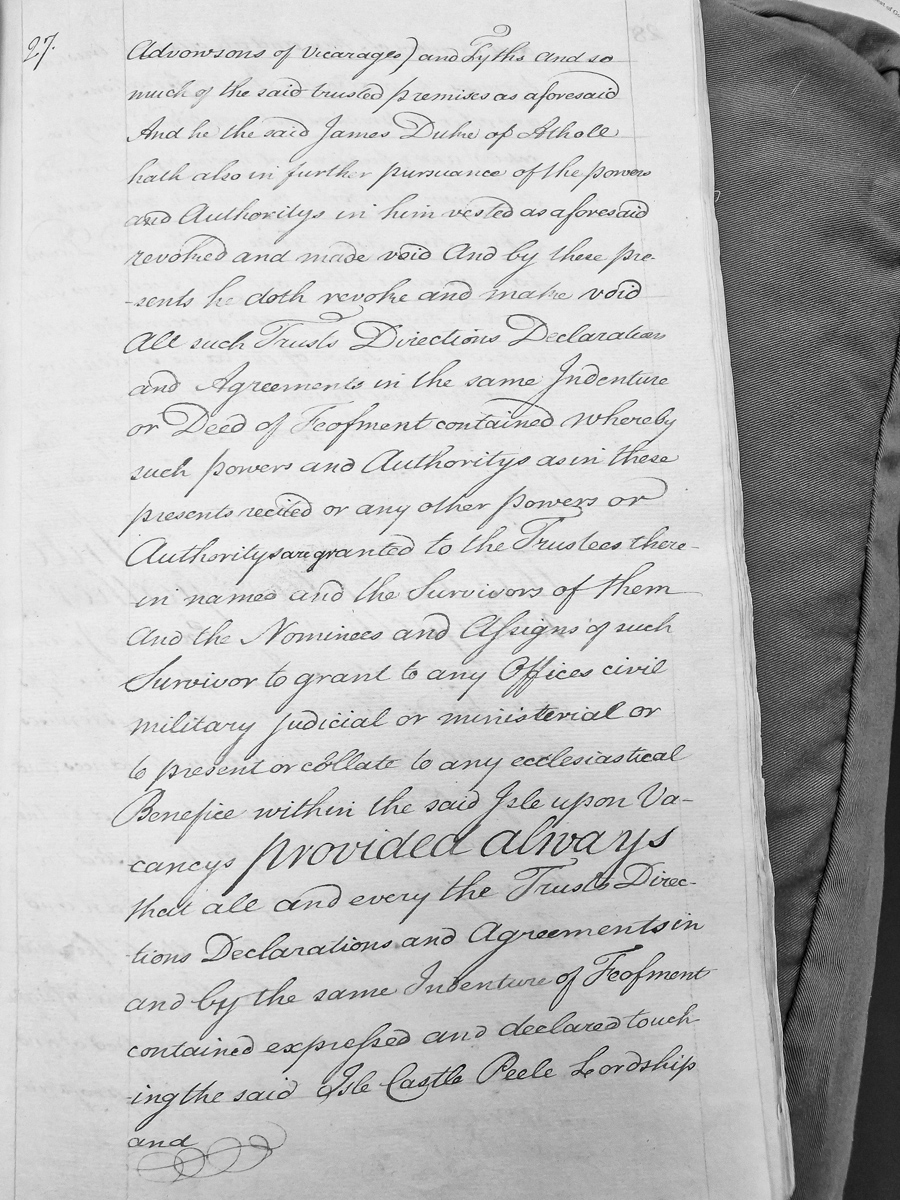 27.
Advowsons of Vicarages) and Tyths and so
much of the said trusted premises as aforesaid
And he the said James Duke of Atholl
hath also in further pursuance of the powers
and Authoritys in him vested as aforesaid
revoked and made void And by these pre-
-sents he doth revoke and make void
All such Trusts Directions Declarations
and Agreements in the same Indenture
or Deed of Feofment contained Whereby
such powers and Authoritys as in these
presents recited or any other powers or
Authoritys are granted to the Trustees there-
in named and the Survivors of them
And the Nominees and Assigns of such
Survivor to grant to any Offices civil
military judicial or ministerial or
to present or collate to any ecclesiastical
Benefice within the said Isle upon Va-
cancys provided always
that all and every the Trusts Direc-
tions Declarations and Agreements in
and by the same Indenture of Feofment
contained expressed and declared touch
-ing the said Isle Castle Peele Lordship
and